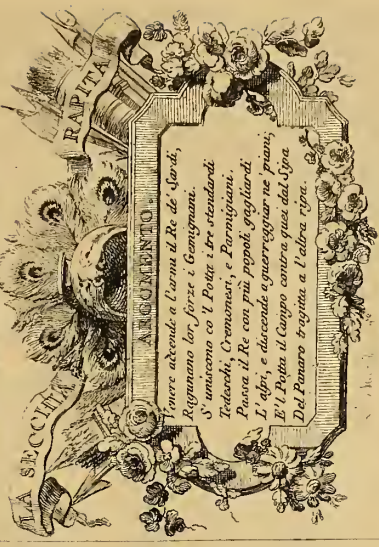 LA SECCHIA
RAPITA
ARGUMENTO.
Venere accende a l'armi il Re de' Sardi,
Ragunano lor forze i Gemignani.
S' uniscono co 'l Potta i tre stendardi
Tedeschi, Cremonesi, e Parmigiani.
Passa il Re con più popoli gagliardi
L'alpi, e discende a guerreggiar ne' piani;
E'l Potta il Campo contra quei del Sipa
Del Panaro tragitta a l'altra ripa.